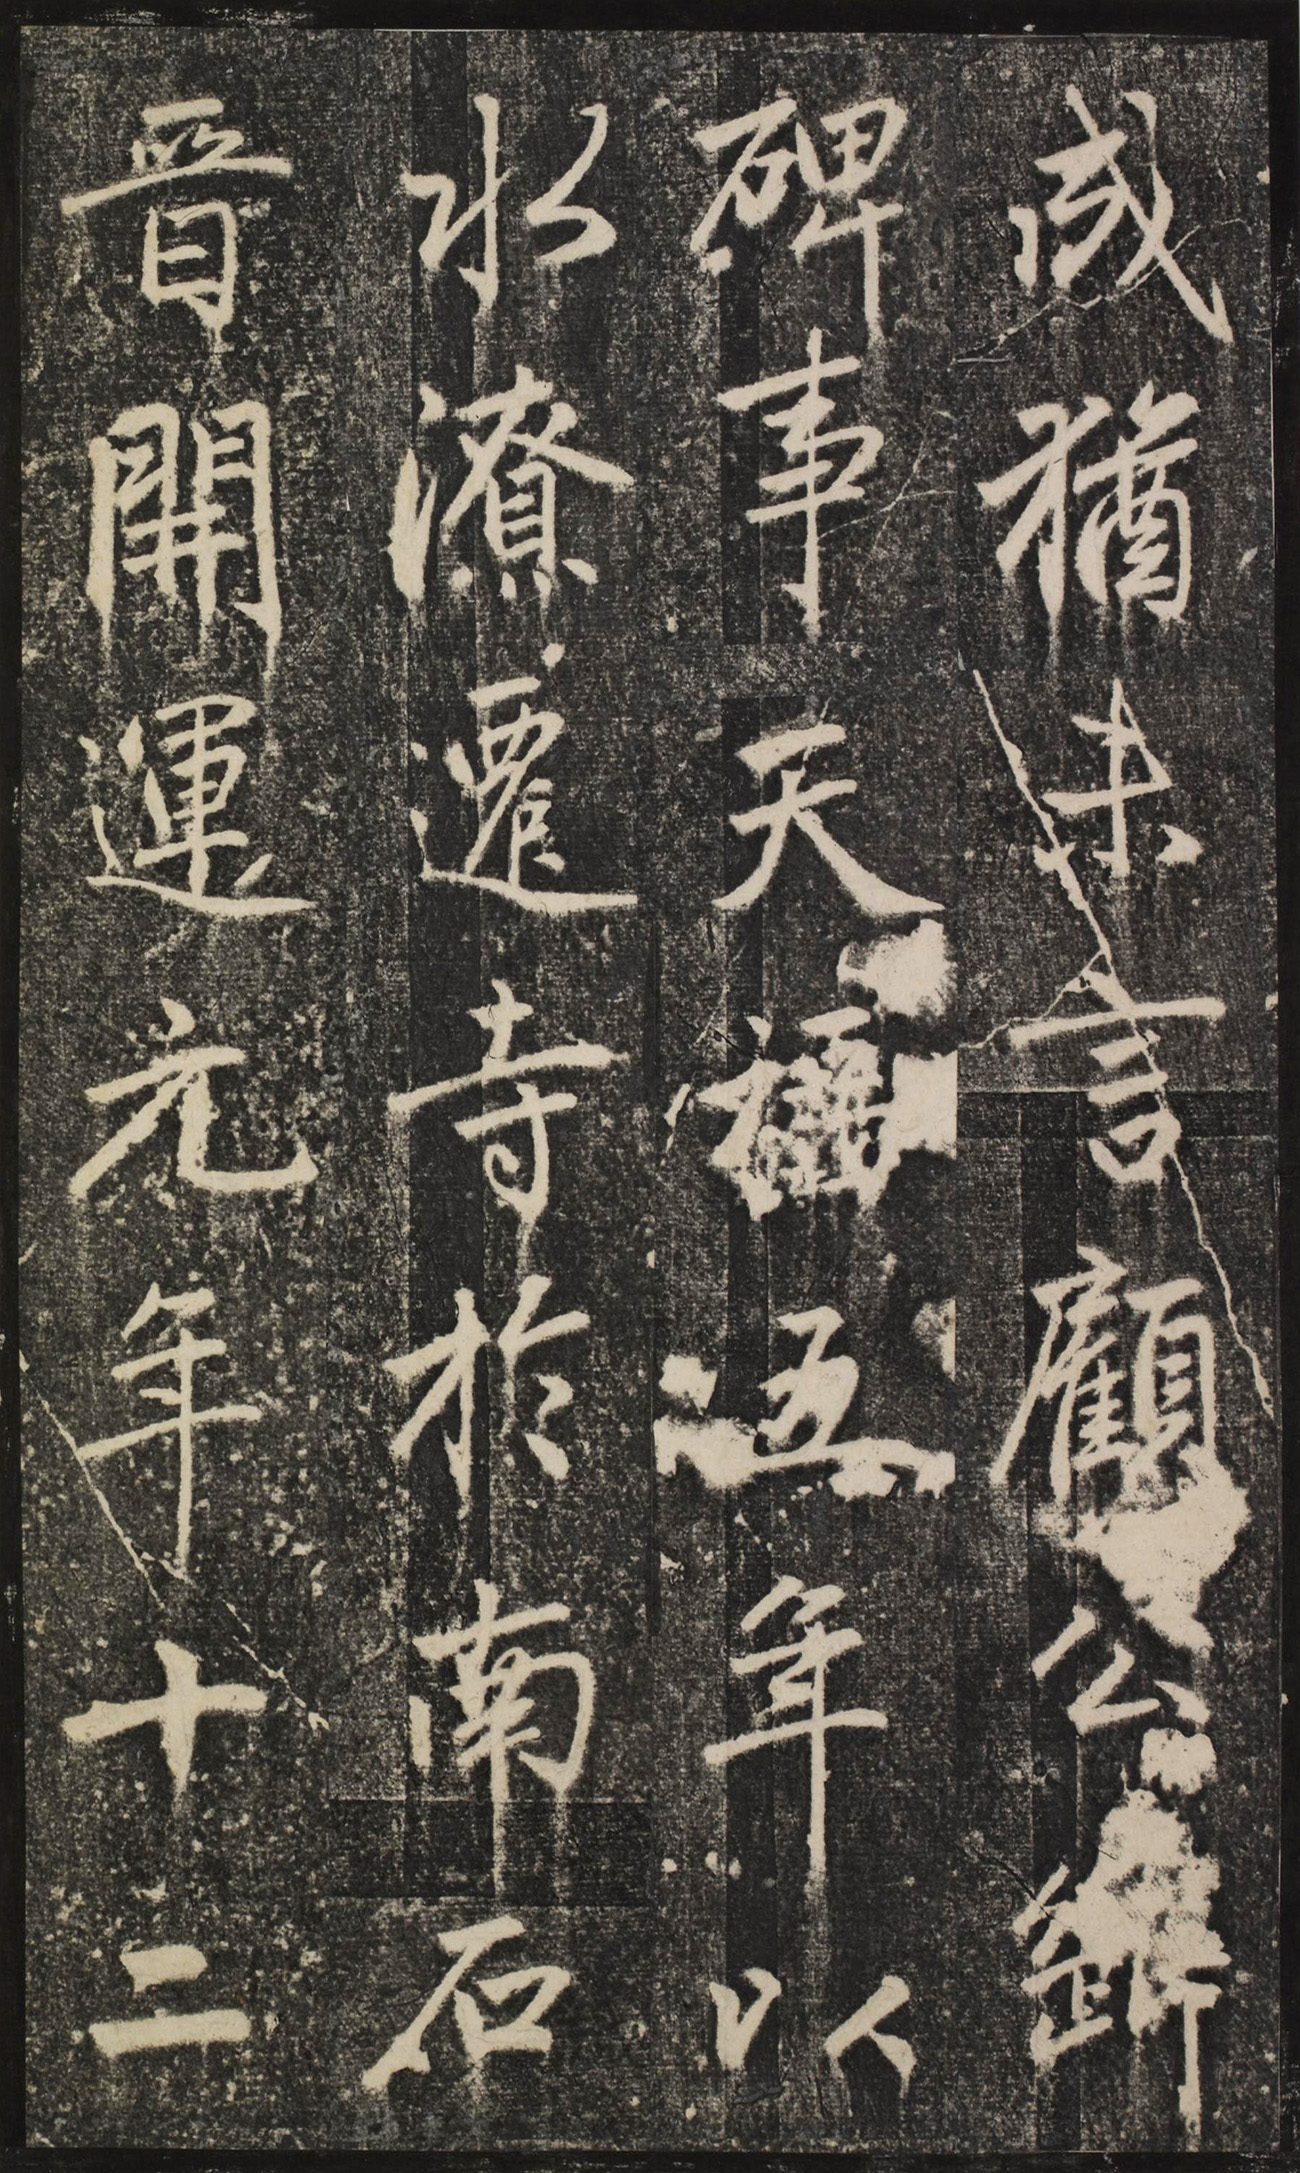 或猶未言顧公
碑事天福五年以
水潦遷寺於南石
晉開運元年十二